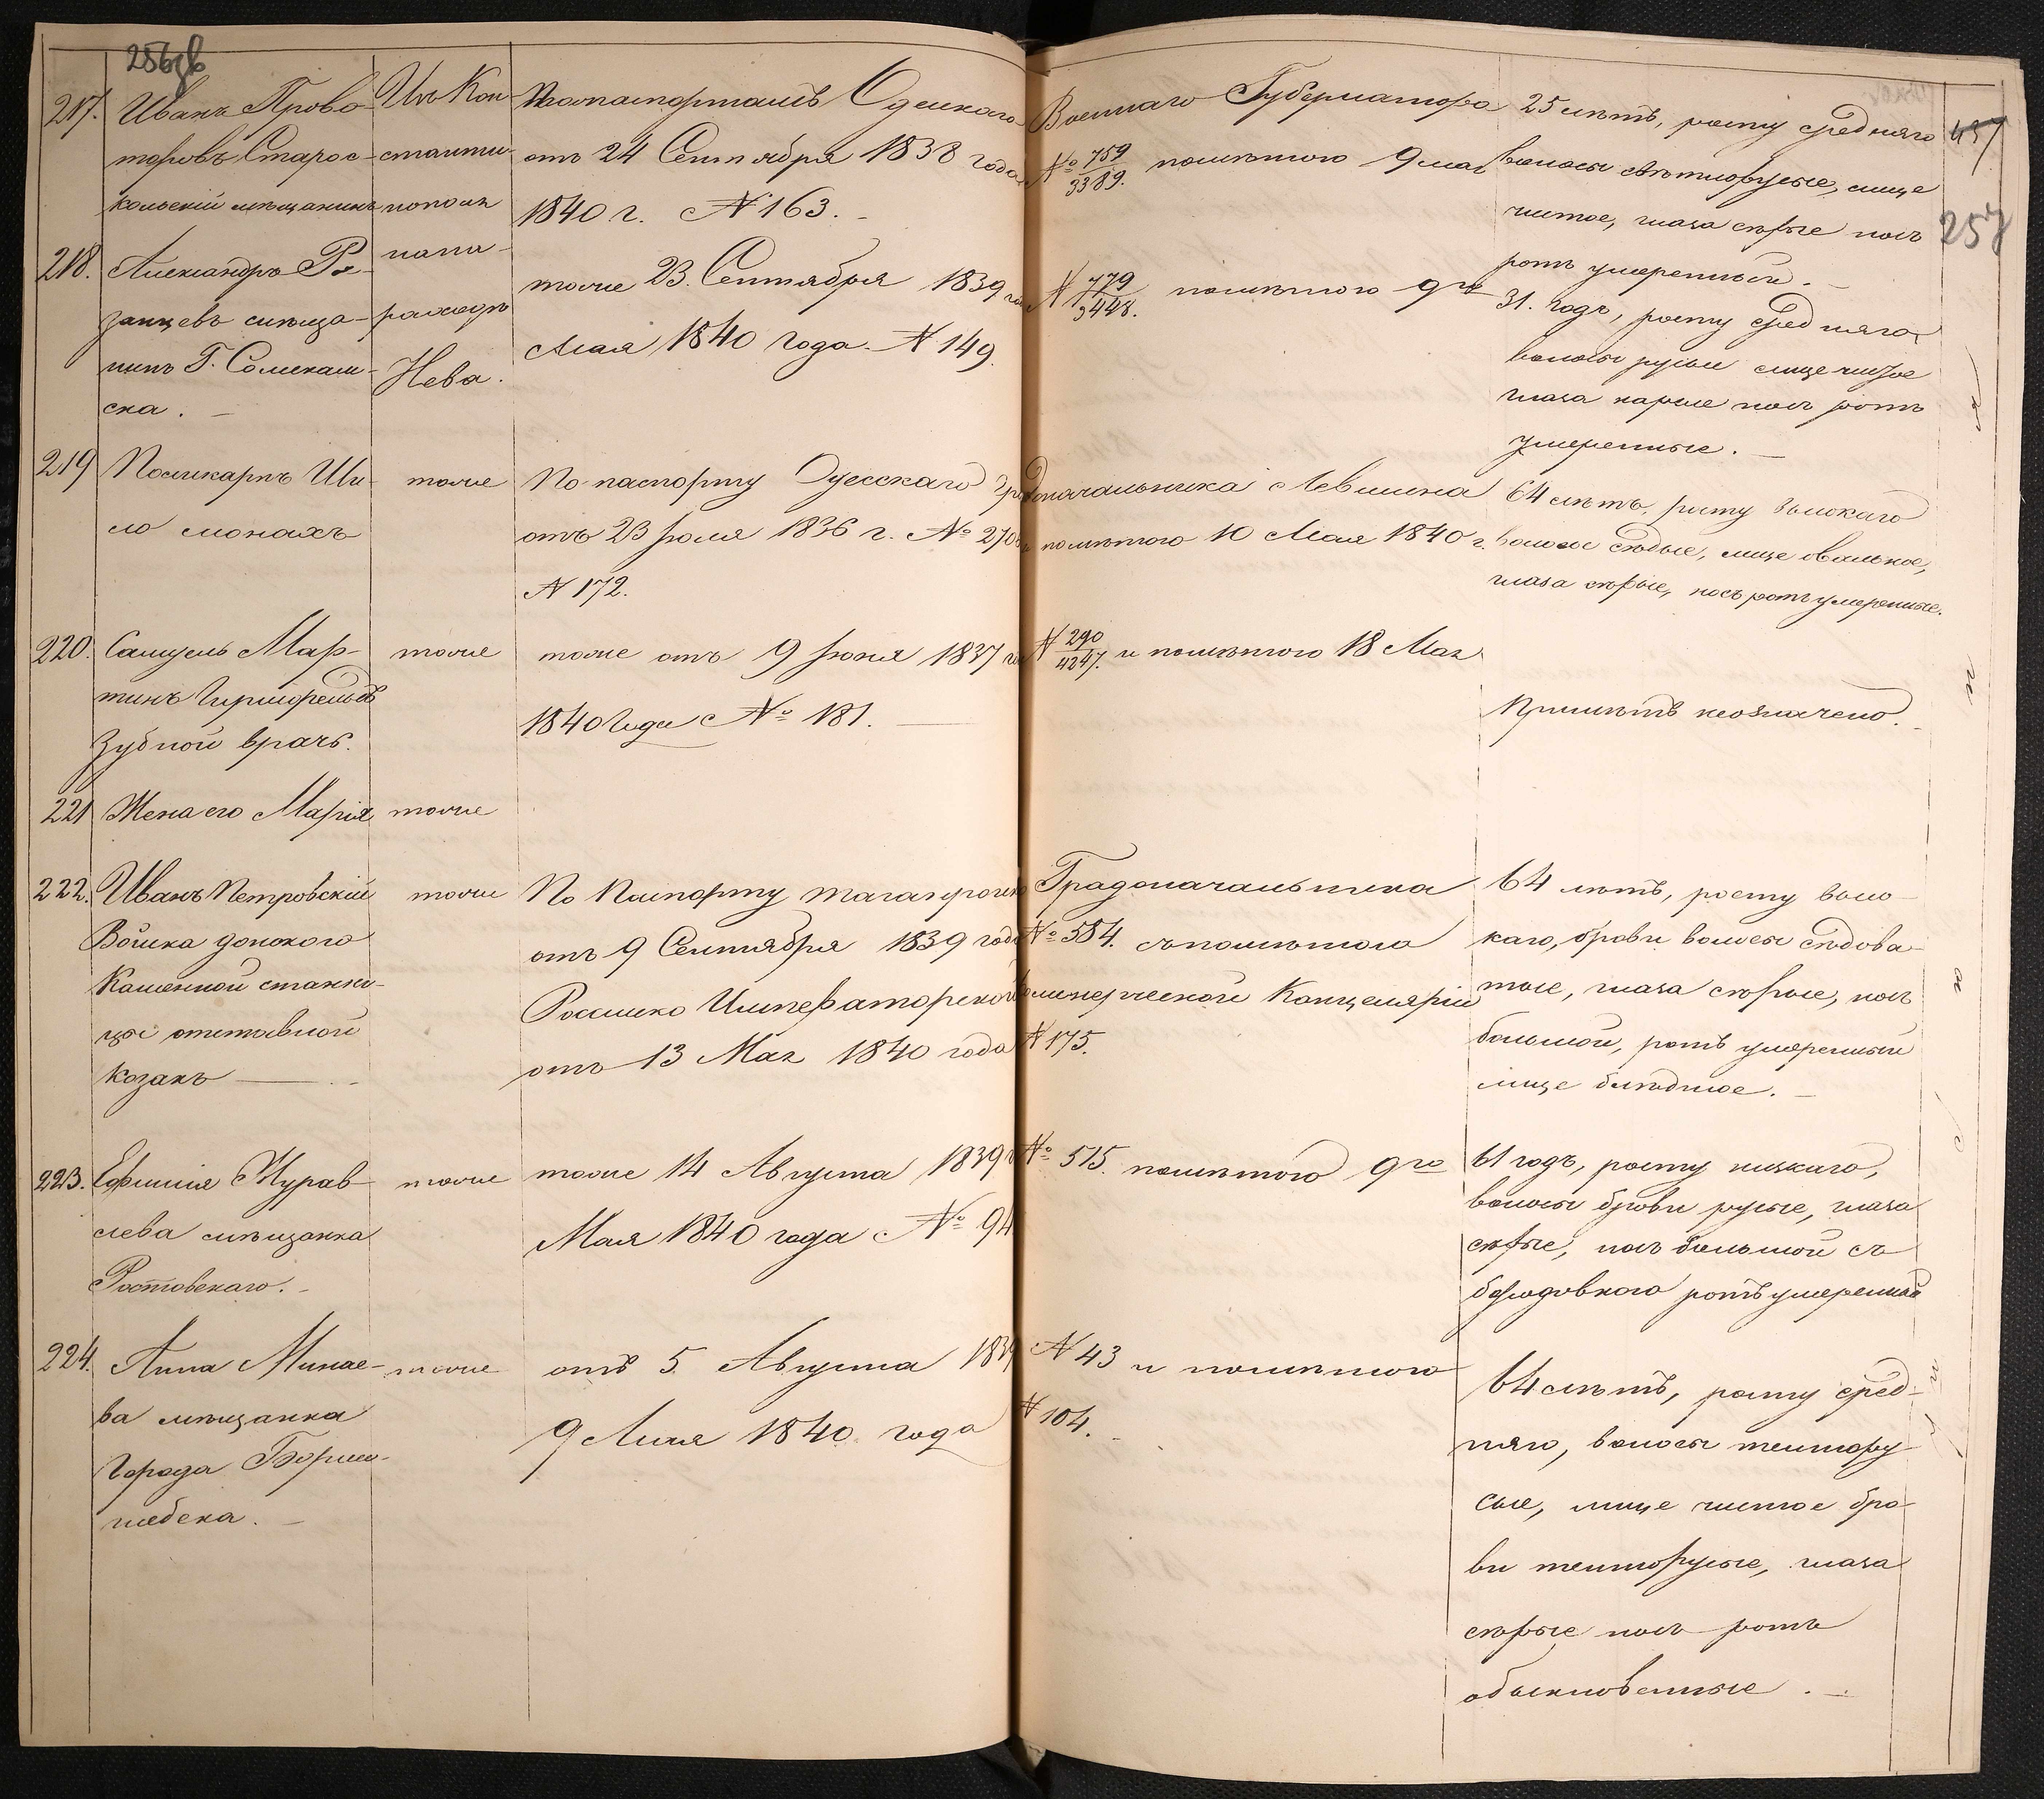 256об
217.
Иванъ Прово
торовъ Старос-
кольскій мѣщанинъ
Изъ Кон
стантинополя
на па-
роходѣ
Нева.
По паспортамъ Одесскаго Военнаго Губернатора
отъ 24 Сентября 1838 года № 759/3389. помѣтою 9 мая
1840 г. № 163.
25 лѣтъ, росту средняго
волосы свѣтлорусые, лице
чистое, глаза сѣрые носъ
ротъ умеренный.
457
257
218.
Александръ Ря-
занцевъ мѣща-
нинъ Г. Соликам-
ска.
тоже 23. Сентября 1839 го № 779/3448. помѣтою 9го
Мая 1840 года. № 149.
31. годъ, росту средняго
волосы русые лице чистое
глаза карые носъ ротъ
умеренные.
219
Поликарпъ Ши-
ло монахъ
тоже
По паспорту Одесскаго Градоначальника Левшина
отъ 23 Іюля 1836 г. № 270 и помѣтою 10 Мая 1840 г.
№ 172.
64 лѣтъ, росту высокаго
волосы сѣдые, лице овальное,
глаза сѣрые, носъ ротъ умеренные.
220.
Самуель Мар-
тинъ Гиршфельдъ
Зубной врачъ.
тоже
тоже отъ 9 Іюня 1837 го № 290/4247. и помѣтою 18 Мая
1840 года № 181.
Примѣтъ неозначено.
221
Жена его Марія
тоже
222.
Иванъ Петровскій
Войска донского
Каменной станни-
цы отставной
козакъ
тоже
По Паспорту таганрогска Градоначальника
отъ 9 Сентября 1839 года № 584. съ помѣтою
Россійско Императорской Коммерческой Канцеляріи
отъ 13 Мая 1840 года № 175.
64 лѣтъ, росту высо-
каго, брови волосы сѣдова-
тые, глаза сѣрые, носъ
большой, ротъ умеренный
лице блѣдное.
223.
Ефимія Журав-
лева мѣщанка
Ростовскаго.
тоже
тоже 14 Августа 1839 № 515. помѣтою 9го
Мая 1840 года № 94
61 годъ, росту низкаго,
волосы брови русые, глаза
сѣрые, носъ большой съ
бородовкою ротъ умеренный
224.
Анна Минае-
ва мѣщанка
города Борисо-
глебска.
тоже
отъ 5. Августа 1839 № 43 и помѣтою
9 Мая 1840 года № 104.
64 лѣтъ, росту сред-
няго, волосы темнору-
сые, лице чистое бро-
ви темнорусые, глаза
сѣрые носъ ротъ
обыкновенные.